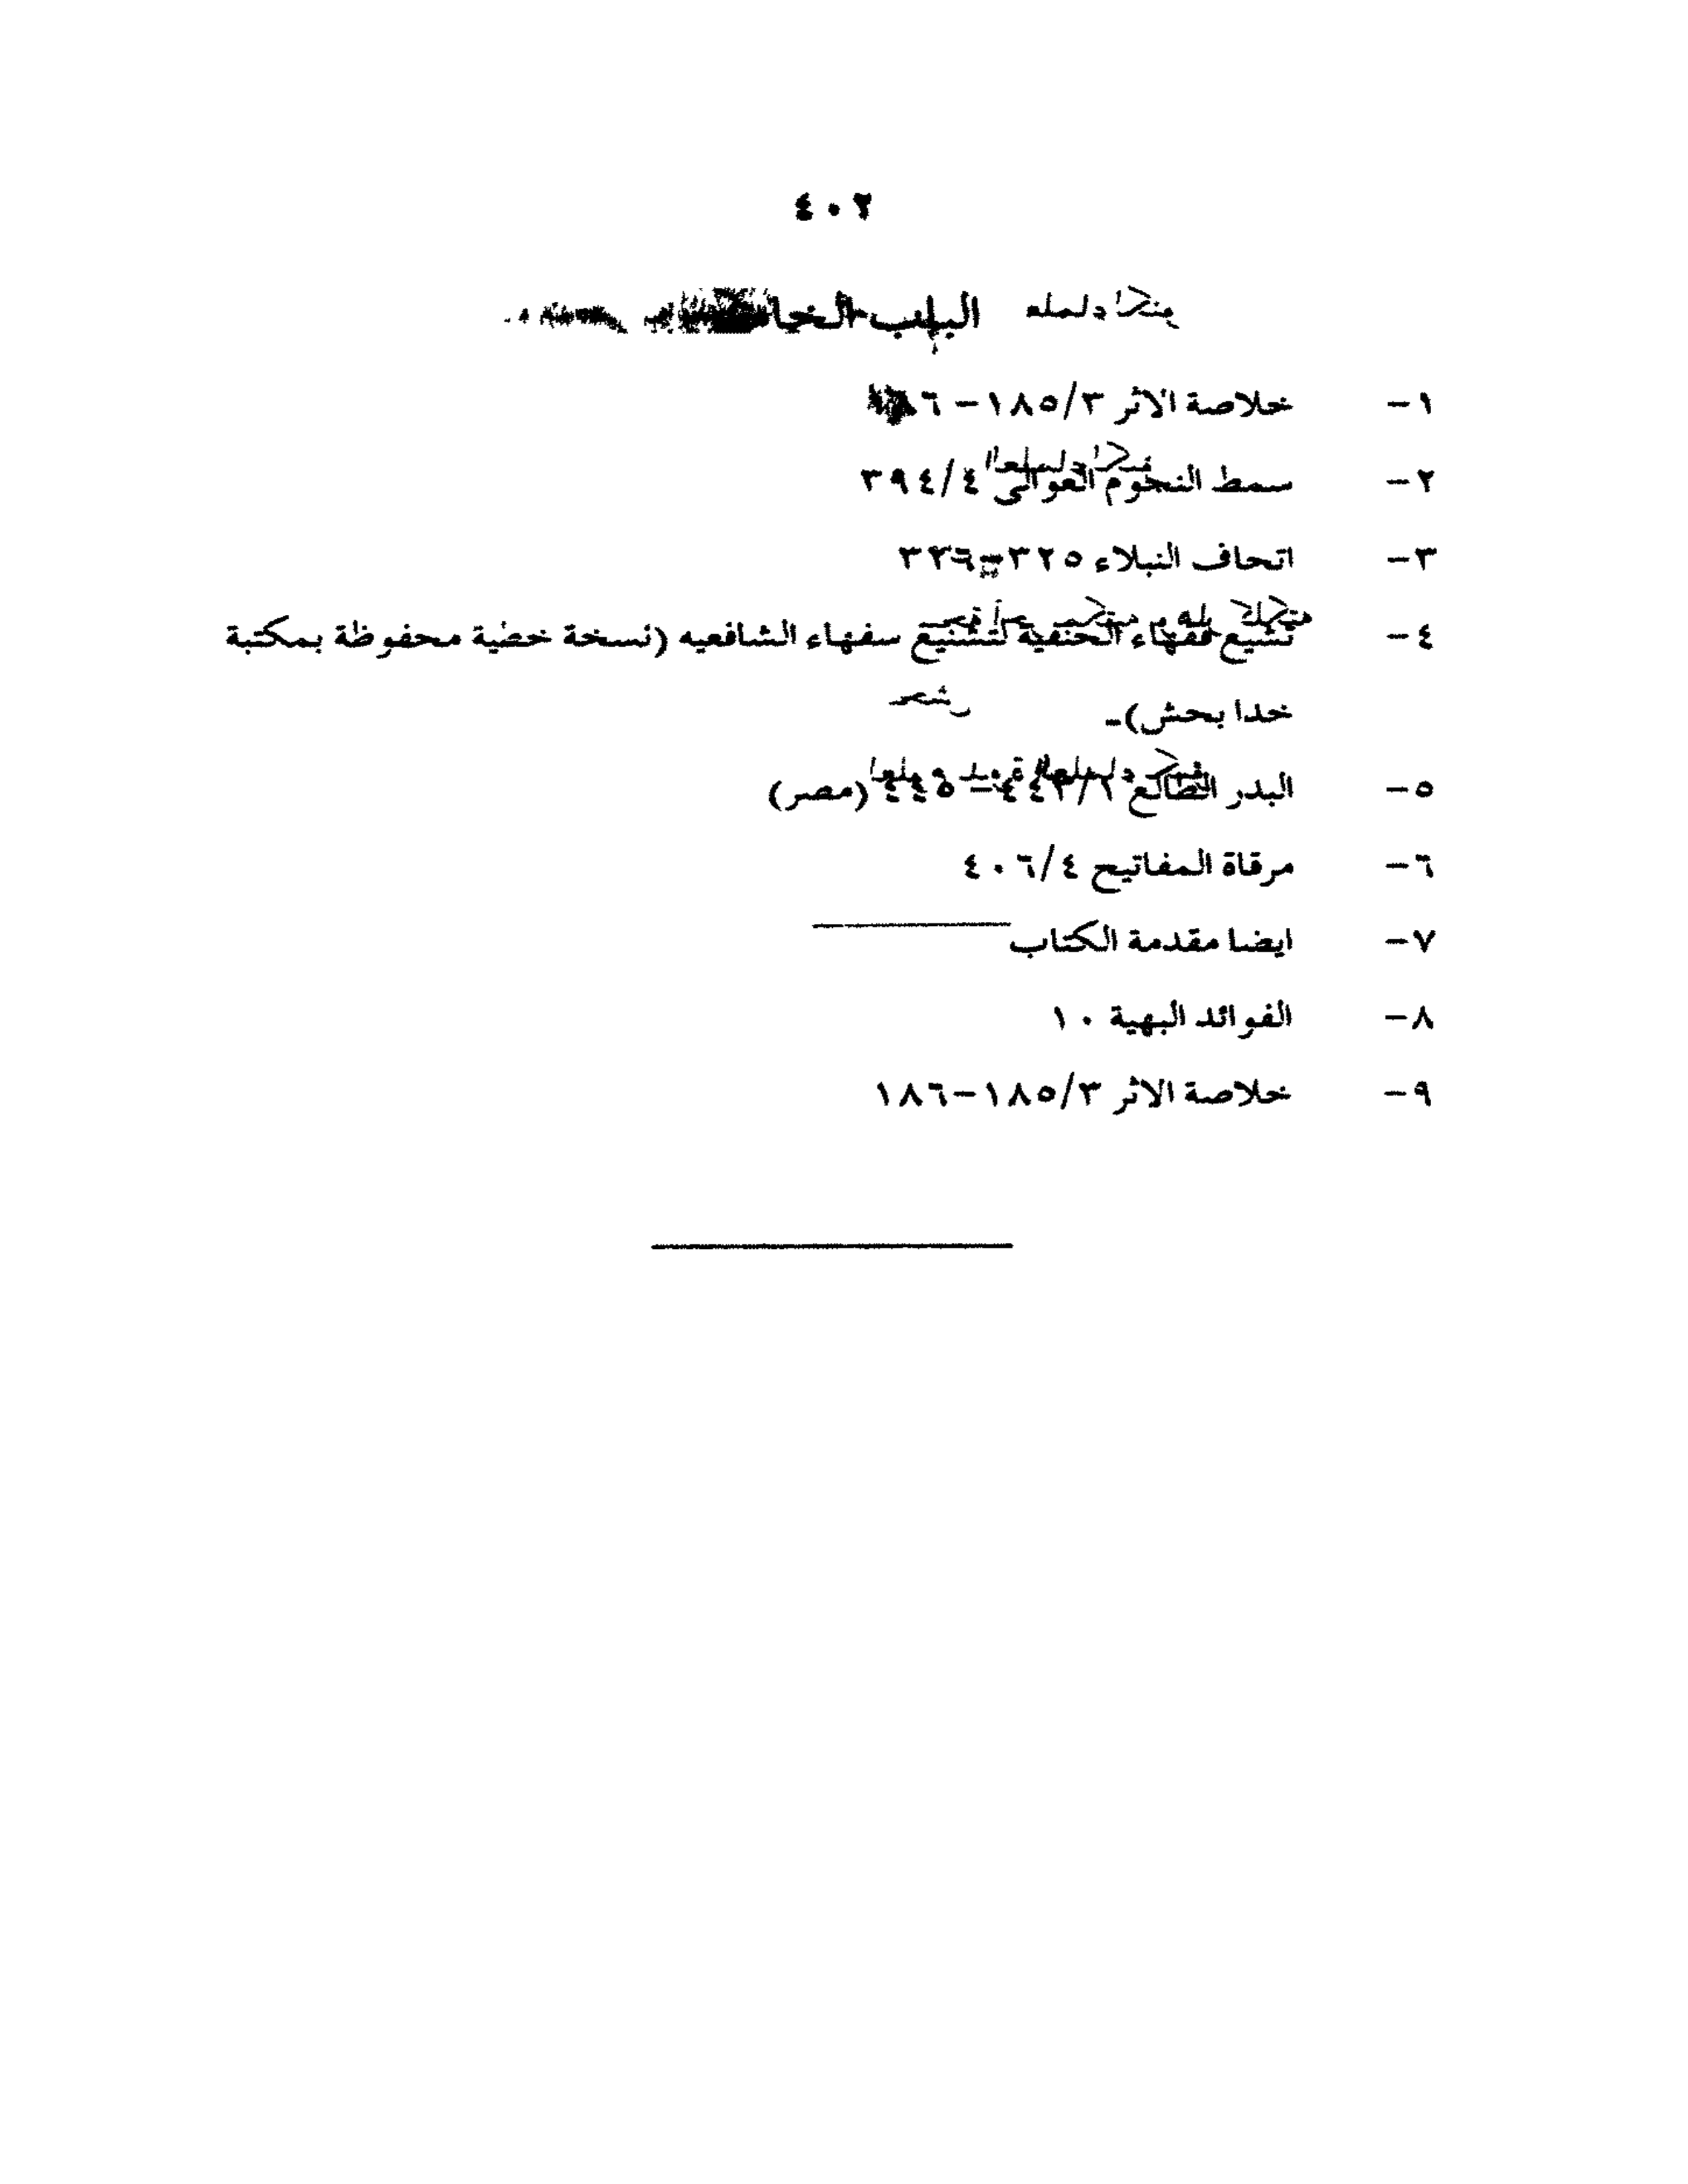 ٤٠٢
الباب
١- خلاصة الاثر ٣/١٨٥-
٢- سمط النجوم العوالي ٤/٣٩٤
٣- اتحاف النبلاء ٣٢٥-٣٢٦
٤- تشيع فقهاء الحنفية لتشنيع سفهاء الشافعيه (نسخة خطية محفوظة بمكتبة
خدا بحش)-
٥- البدر الطالع - ٤٤٥ (مصر)
٦- مرقاة المفاتيح ٤/٤٠٦
٧- ايضا مقدمة الكتاب
٨- الفوائد البهية ١٠
٩- خلاصة الاثر ٣/١٨٥-١٨٦